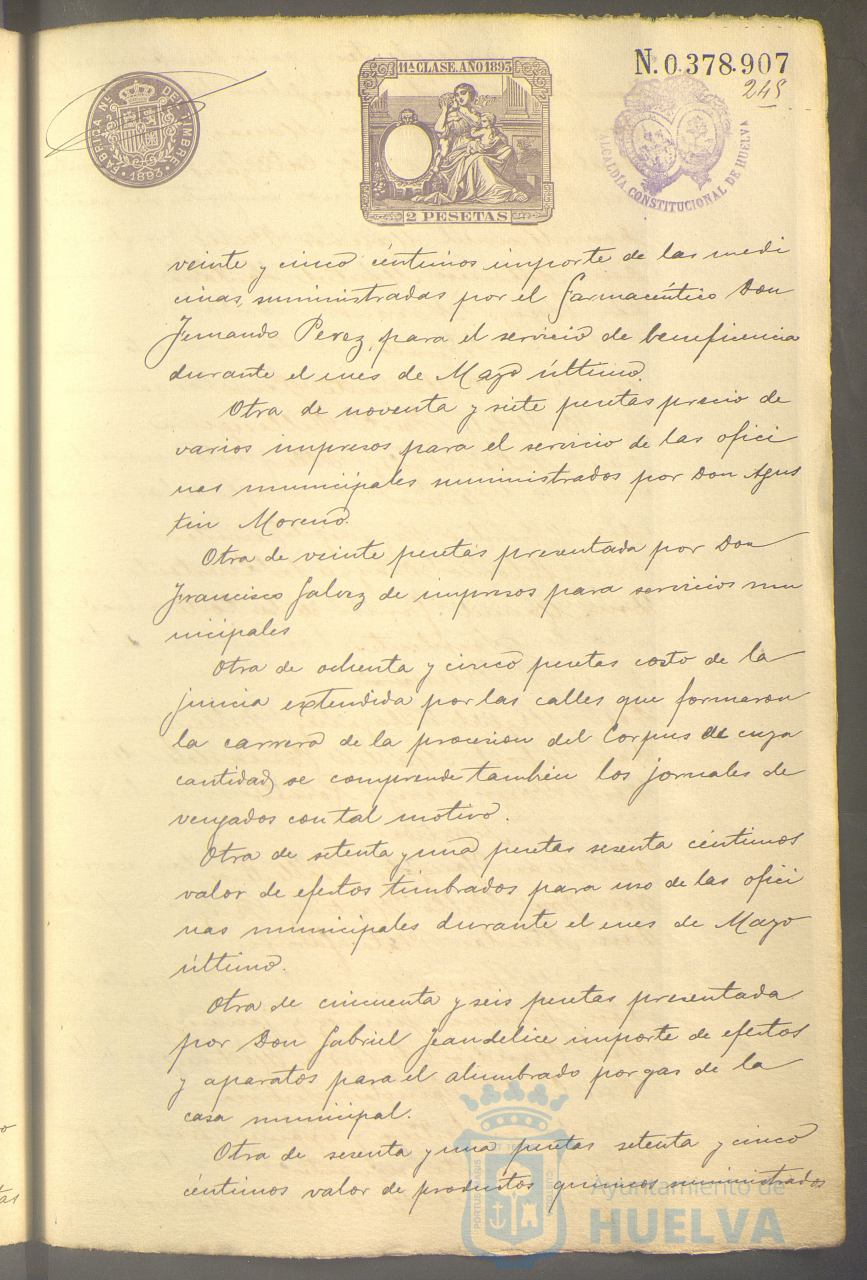 N. 0.378.907
245
FABRICA NL. DEL TIMBRE
1893
11ª CLASE. AÑO 1893
2 PESETAS
ALCALDÍA CONSTITUCIONAL DE HUELVA
veinte y cinco céntimos importe de las medi
cinas, suministradas por el farmacéutico Don
Fernando Perez, para el servicio de beneficencia
durante el mes de Mayo último.
Otra de noventa y siete pesetas precio de
varios impresos para el servicio de las ofici
nas municipales suministrados por Don Agus
tin Moreno.
Otra de veinte pesetas presentada por Don
Francisco Galvez de impresos para servicios mu
nicipales
Otra de ochenta y cinco pesetas costo de la
juncia extendida por las calles que formaron
la carrera de la procesion del Corpus de cuya
cantidad se comprende también los jornales de
vengados con tal motivo.
Otra de setenta y una pesetas sesenta céntimos
valor de efectos timbrados para uso de las ofici
nas municipales durante el mes de Mayo
último.
Otra de cincuenta y seis pesetas presentada
por Don Gabriel Jeandelice importe de efectos
y aparatos para el alumbrado por gas de la
casa municipal.
Otra de sesenta y una pesetas setenta y cinco
céntimos valor de productos quimicos suministrados
Ayuntamiento de
HUELVA